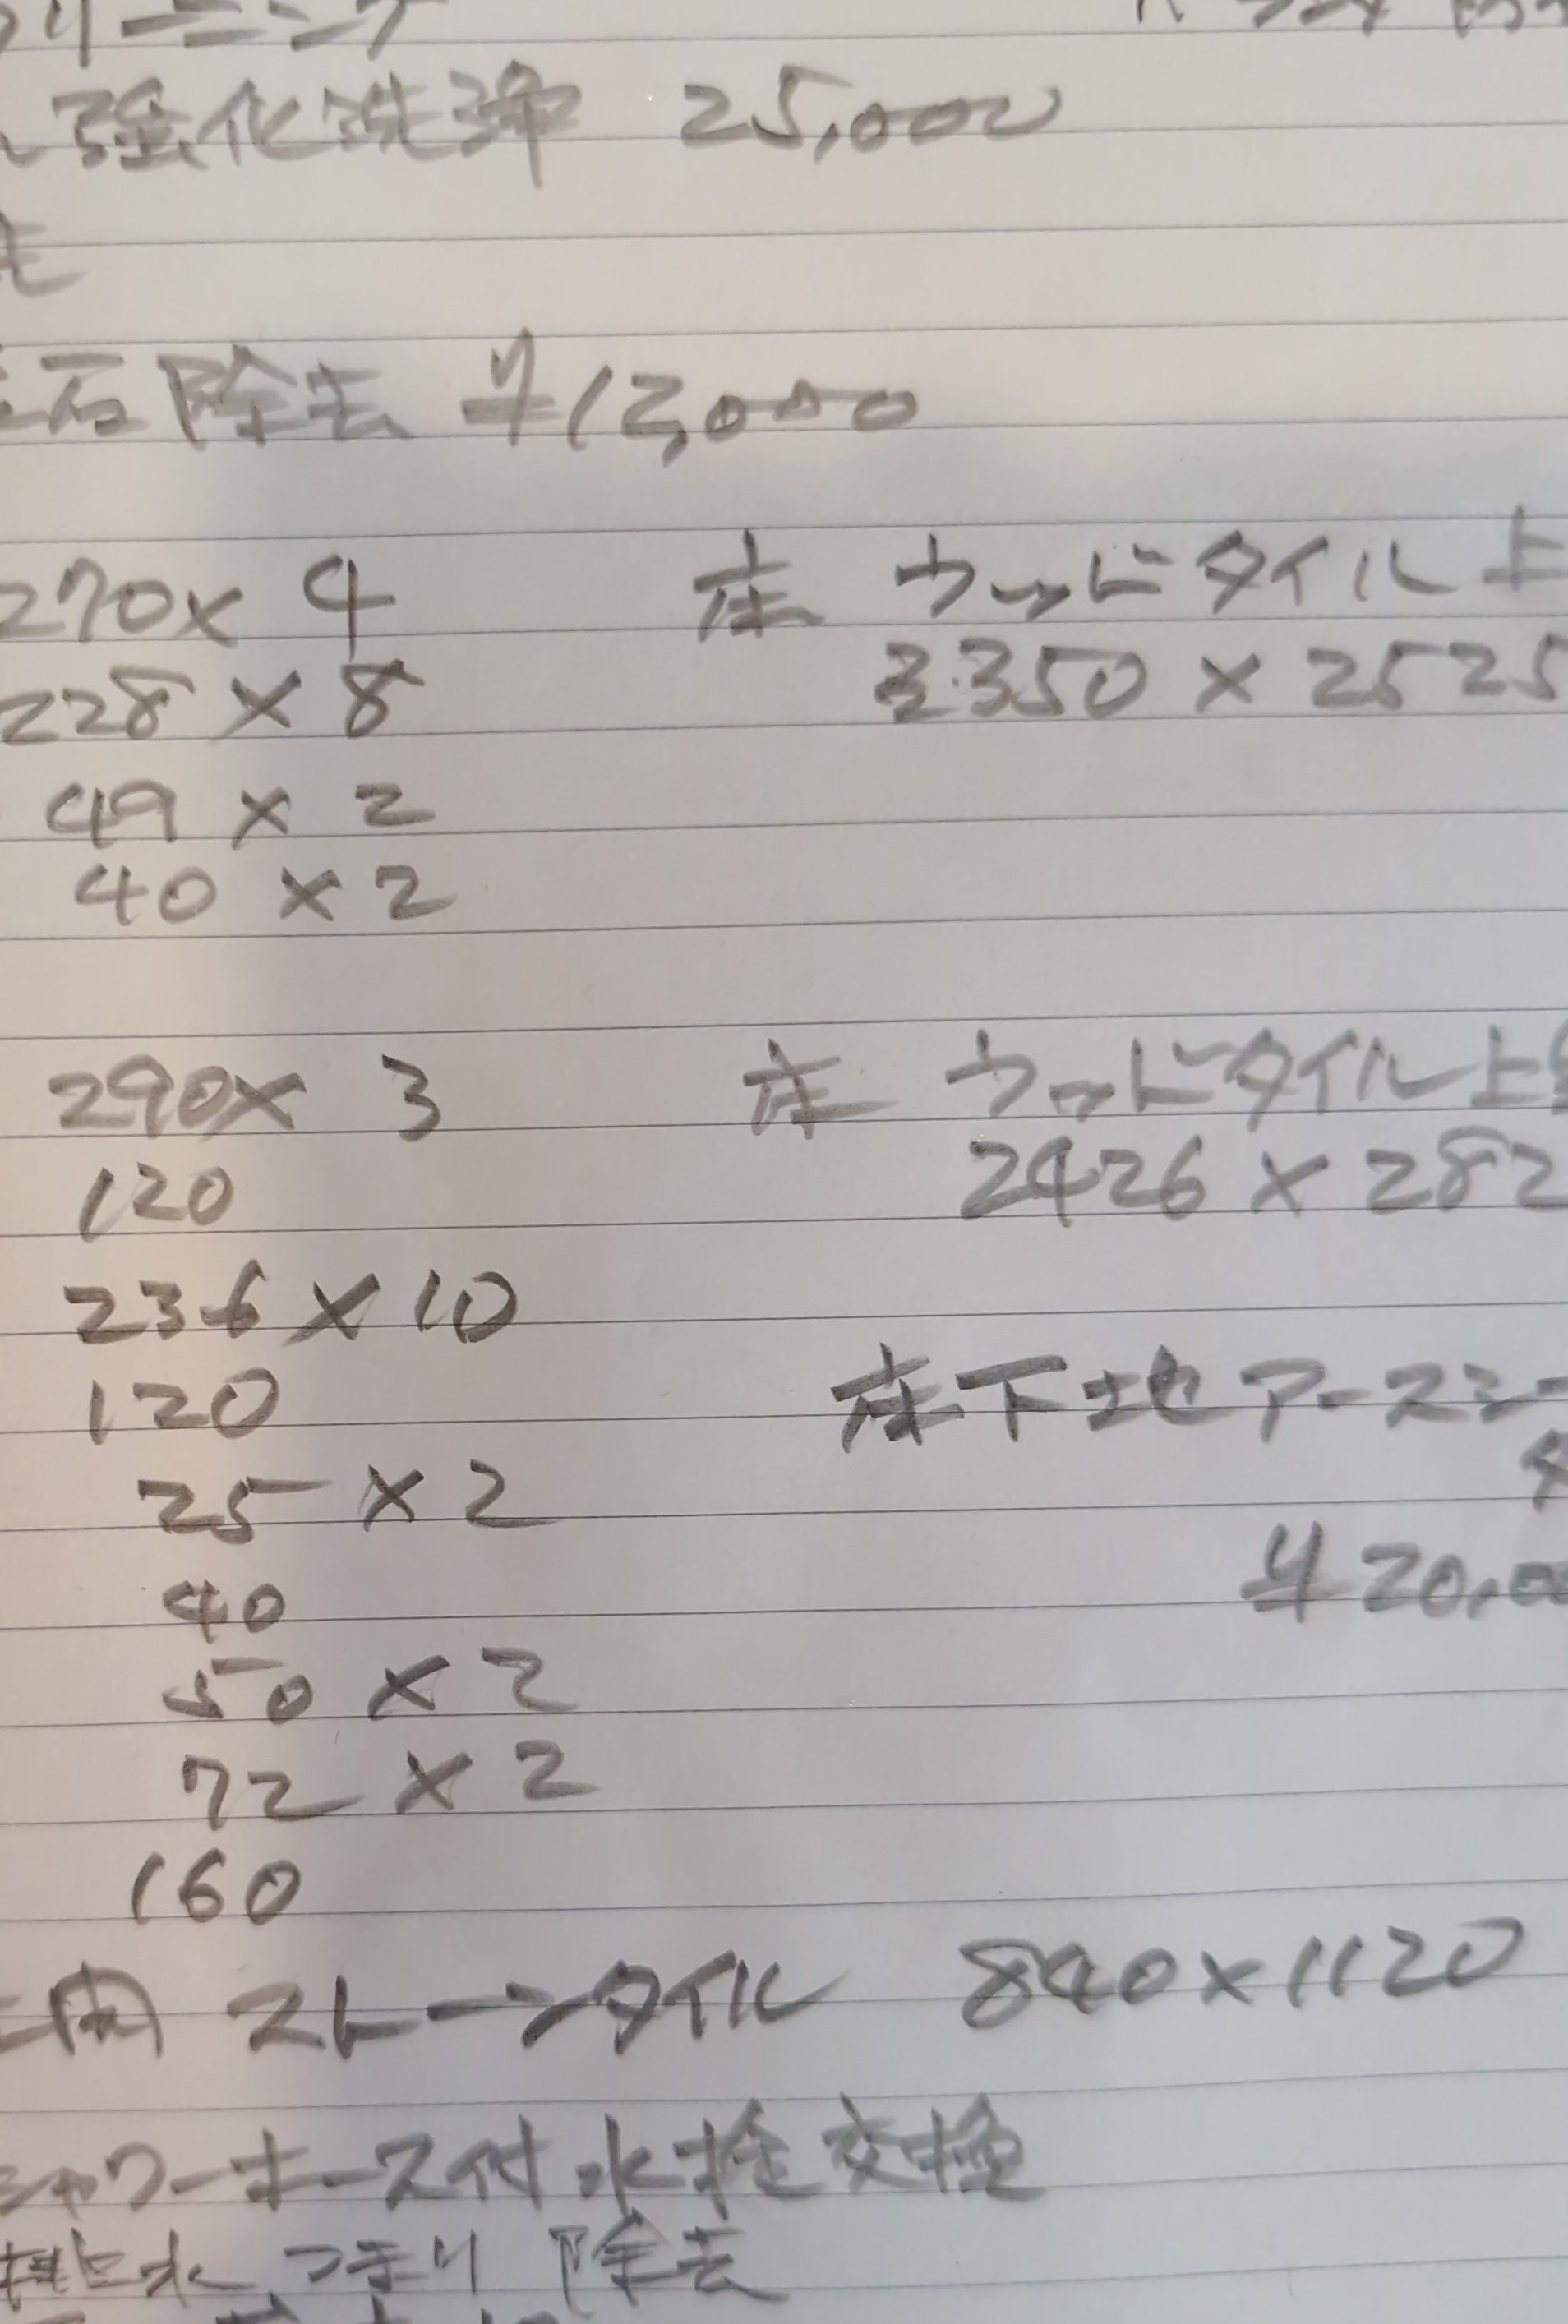 リーニング
強化洗浄 25,000
石除去 ¥12,000
270× 4 床 ウッドタイル上
228 × 8 3350 × 2525
49 × 2
40 × 2
290× 3 床 ウッドタイル上
120 2426 × 282
236 × 10
120 床下地 アースシー
25 × 2
40 ¥20,00
50 × 2
72 × 2
160
ストーンタイル 840×1120
シャワーホース付水栓交換
排水つまり除去